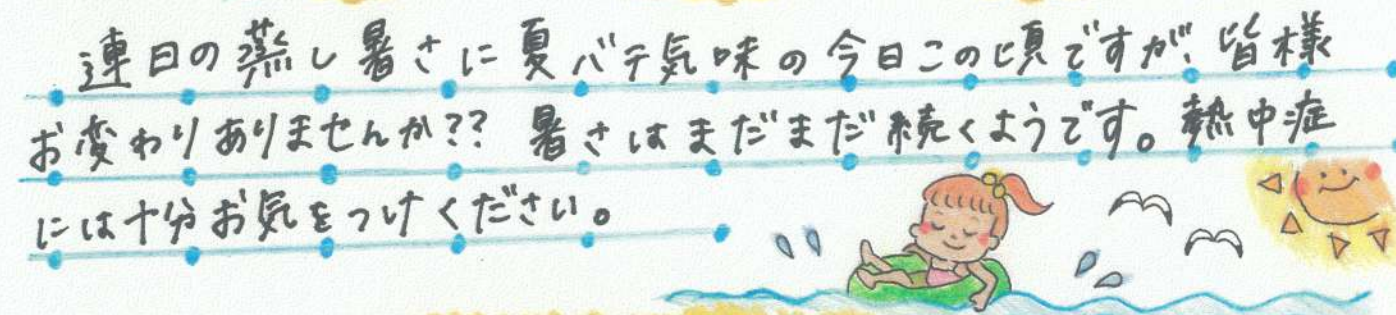 連日の蒸し暑さに夏バテ気味の今日この頃ですが、皆様
お変わりありませんか?? 暑さはまだまだ続くようです。熱中症
には十分お気をつけください。